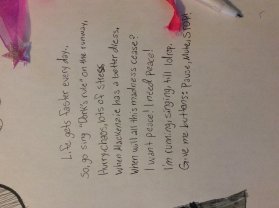 Life gets faster every day.
So, go sing "Dork's rule" on the runway,
Hurry, chaos, lots of stress
When Mackenzie has a better dress,
When will all this madness cease?
I want peace! I need peace!
I'm running, singing, till I drop.
Give me buttons: Pause, Mute, Stop!